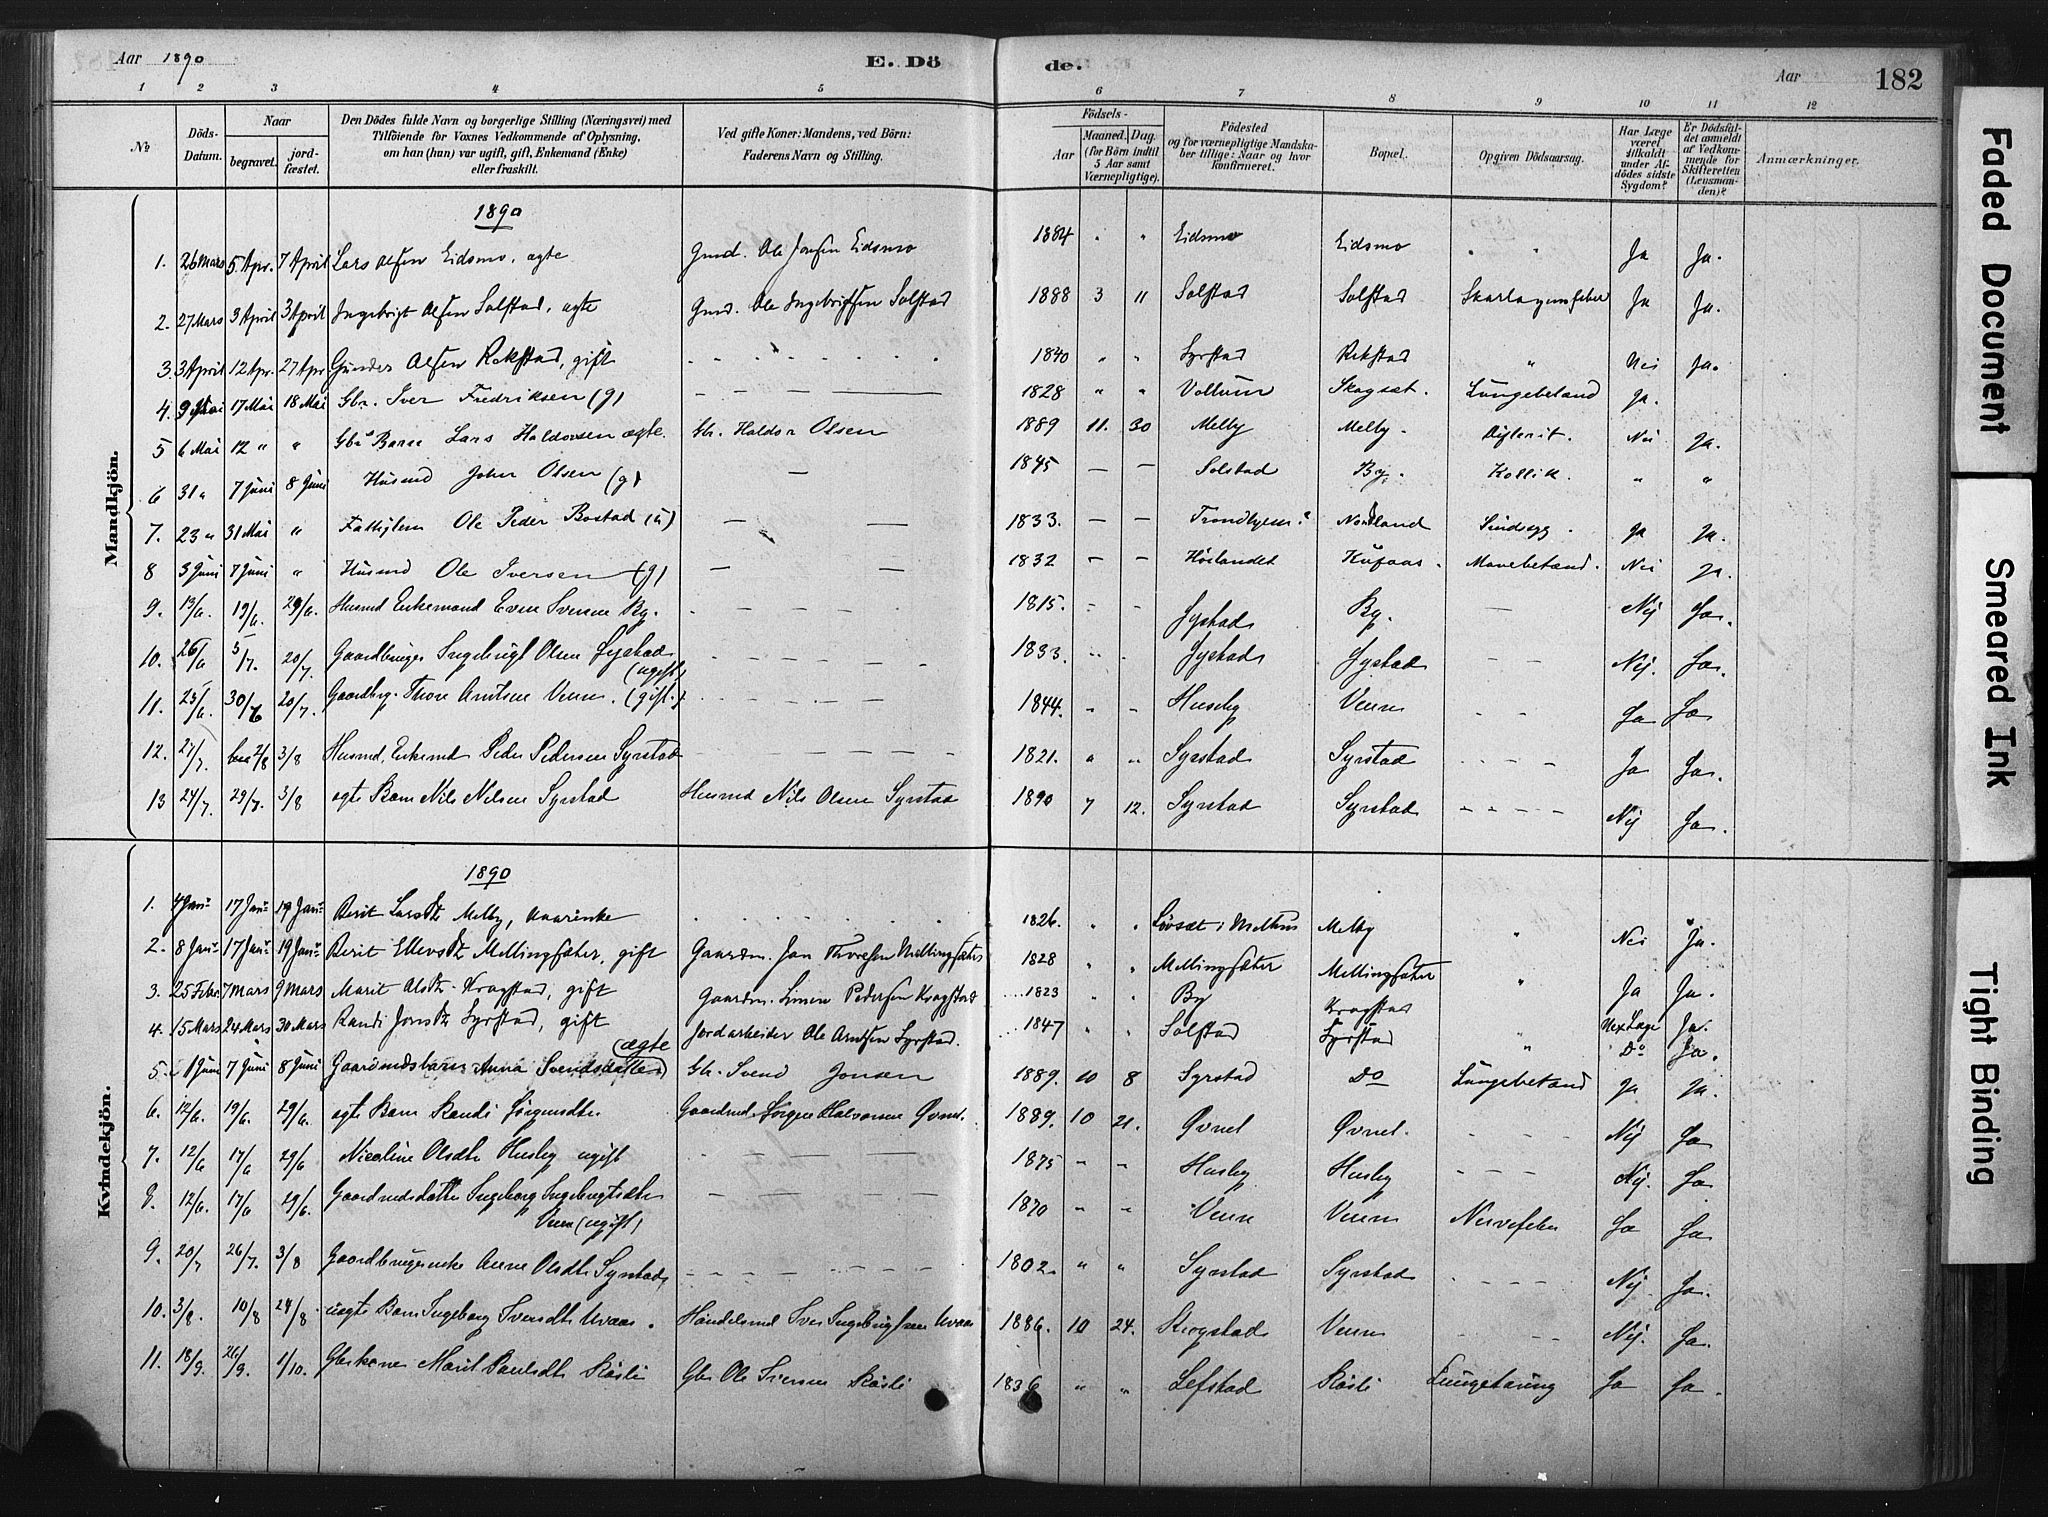 Aar 1890
E. Dö
de.
Aar
182
1 2 3 4 5 6 7 8 9 10 11 12
No
Döds-Datum.
Naar
begravet.
jord-fæstet.
Den Dödes fulde Navn og borgerlige Stilling (Næringsvei) med
Tilföiende for Voxnes Vedkommende af Oplysning,
om han (hun) var ugift, gift, Enkemand (Enke)
eller fraskilt.
Ved gifte Koner: Mandens, ved Börn:
Faderens Navn og Stilling.
Födsels-
Aar
Maaned. Dag.
(for Börn indtil
5 Aar samt
Værnepligtige).
Födested
og for værnepligtige Mandska-
ber tillige: Naar og hvor
konfirmeret.
Bopæl.
Opgiven Dödsaarsag.
Har Læge
været
tilkaldt
under Af-
dödes sidste
Sygdom?
Er Dödsfal-
det anmeldt
af Vedkom-
mende for
Skifteretten
(Lensman-
den)?
Anmærkninger.
Mandkjön.
1890
1. 26 Mars 5 Apr. 7 April Lars Olsen Eidsmo, ægte Gmd. Ole Jonsen Eidsmo 1884 " " Eidsmo Eidsmo " " Ja Ja.
2. 27 Mars 3 April 3 April Ingebrigt Olsen Solstad, ægte Gmd. Ole Ingebrigtsen Solstad 1888 3 11 Solstad Solstad Skarlagensfeber Ja Ja.
3. 3 April 12 Apr. 27 Apr Gunder Olsen Rekstad, gift 1840 " " Syrstad Rekstad " Nei Ja.
4. 9 Mai 17 Mai 18 Mai Gbr. Iver Fredriksen (g) — — — 1828 " " Vollum Skogset. Lungebetænd Ja.
5 6 Mai 12 " " Gbr's Barn Lars Haldorsen ægte. Gbr. Haldor Olsen 1889 11. 30 Melby Melby. Difterit. Nei Ja.
6 31 " 7 Juni 8 Juni Husmd John Olsen (g) — 1845 — — Solstad By. Kollik. " "
7. 23 " 31 Mai " Fattiglem Ole Peder Bostad (u) — — 1833. — — Trondhjem? Nordland Sindssyg. Ja Ja.
8 3 Juni 7 Juni " Husmd Ole Iversen (g) — — 1832 — — Höilandet Kufaas. Mavebetænd. Nei Ja.
9. 13/6. 19/6. 29/6. Husmd Enkemand Even Svensen By. 1815. - - Syrstad By. — Nej Ja.
10. 26/6 5/7. 20/7. Gaardbruger Ingebrigt Olsen Syrstad (ugift) 1833. " " Syrstad Syrstad - - Nej. Ja.
11. 25/6. 30/6 20/7. Gaardbrg. Thore Arntsen Veum. (gift.) 1844. " " Huseby Veum - - Ja Ja
12. 27/7. 2/8 3/8 Husmd, Enkemd Peder Pedersen Syrstad 1821. " " Syrstad Syrstad - - - - Ja Ja.
13 24/7. 29/7. 3/8 ægte Barn Nils Nilsen Syrstad Husmd Nils Olsen Syrstad 1890 7 12. Syrstad Syrstad - - - - Nej Ja.
Kvindekjön.
1890
1. 4 Janr 17 Janr 19 Janr Berit Larsdtr Melby, Kaarenke 1826. " " Løvset i Melhus Melby " Nei Ja.
2. 8 Janr 17 Janr 19 Janr Berit Ellevsdtr Mellingsæter, gift Gaardm. Jon Thoresen Mellingsæter 1828 " " Mellingsæter Mellingsæter " Ja Ja.
3. 25 Febr. 7 Mars 9 Mars Marit Olsdtr Krogstad, gift Gaardm. Simen Pedersen Krogstad 1823 " " By Krogstad
4. 15 Mars 24 Mars 30 Mars Randi Jonsdtr Syrstad, gift Jordarbeider Ole Arntsen Syrstad. 1847 " " Solstad Syrstad " Do Ja.
5. 1 Juni 7 Juni 8 Juni Gaardmdsbarn Anna Svendsdatter (ægte) Gbr. Svend Jonsen 1889. 10 8 Syrstad Do Lungebetænd Ja Ja.
6. 12/6. 19/6. 29/6. ægte Barn Randi Jörgensdtr Gaardmd Jörgen Halvorsen Ovnet. 1889. 10 21. Ovnet Ovnet. - - - Nej Ja
7. 12/6 17/6 29/6 Nicoline Olsdtr Husby ugift 1875 " " Husby Husby - - - Nej. Ja
8. 12/6. 17/6 29/6. Gaardmdsdatter Ingeborg Ingebrigtsdtr Veum (ugift) 1870 " " Veum Veum Nervefeber Ja Ja
9. 20/7 26/7. 3/8 Gaardbrugerenke Anne Olsdtr Syrstad, 1802. " " Syrstad Syrstad - - - - Nej. Ja.
10. 3/8. 10/8 24/8 uægte Barn Ingeborg Iversdtr Uvaas. Handelsmd Iver Ingebrigtsen Uvaas 1886. 10 24. Krogstad Veum - - - Nej. Ja.
11. 18/9. 26/9. 1/10. Gbrkone Marit Paulsdtr Kösli Gbr Ole Iversen Kösli 1836 " " Lefstad Kösli Lungetæring Ja Ja.
Faded Document
Smeared Ink
Tight Binding